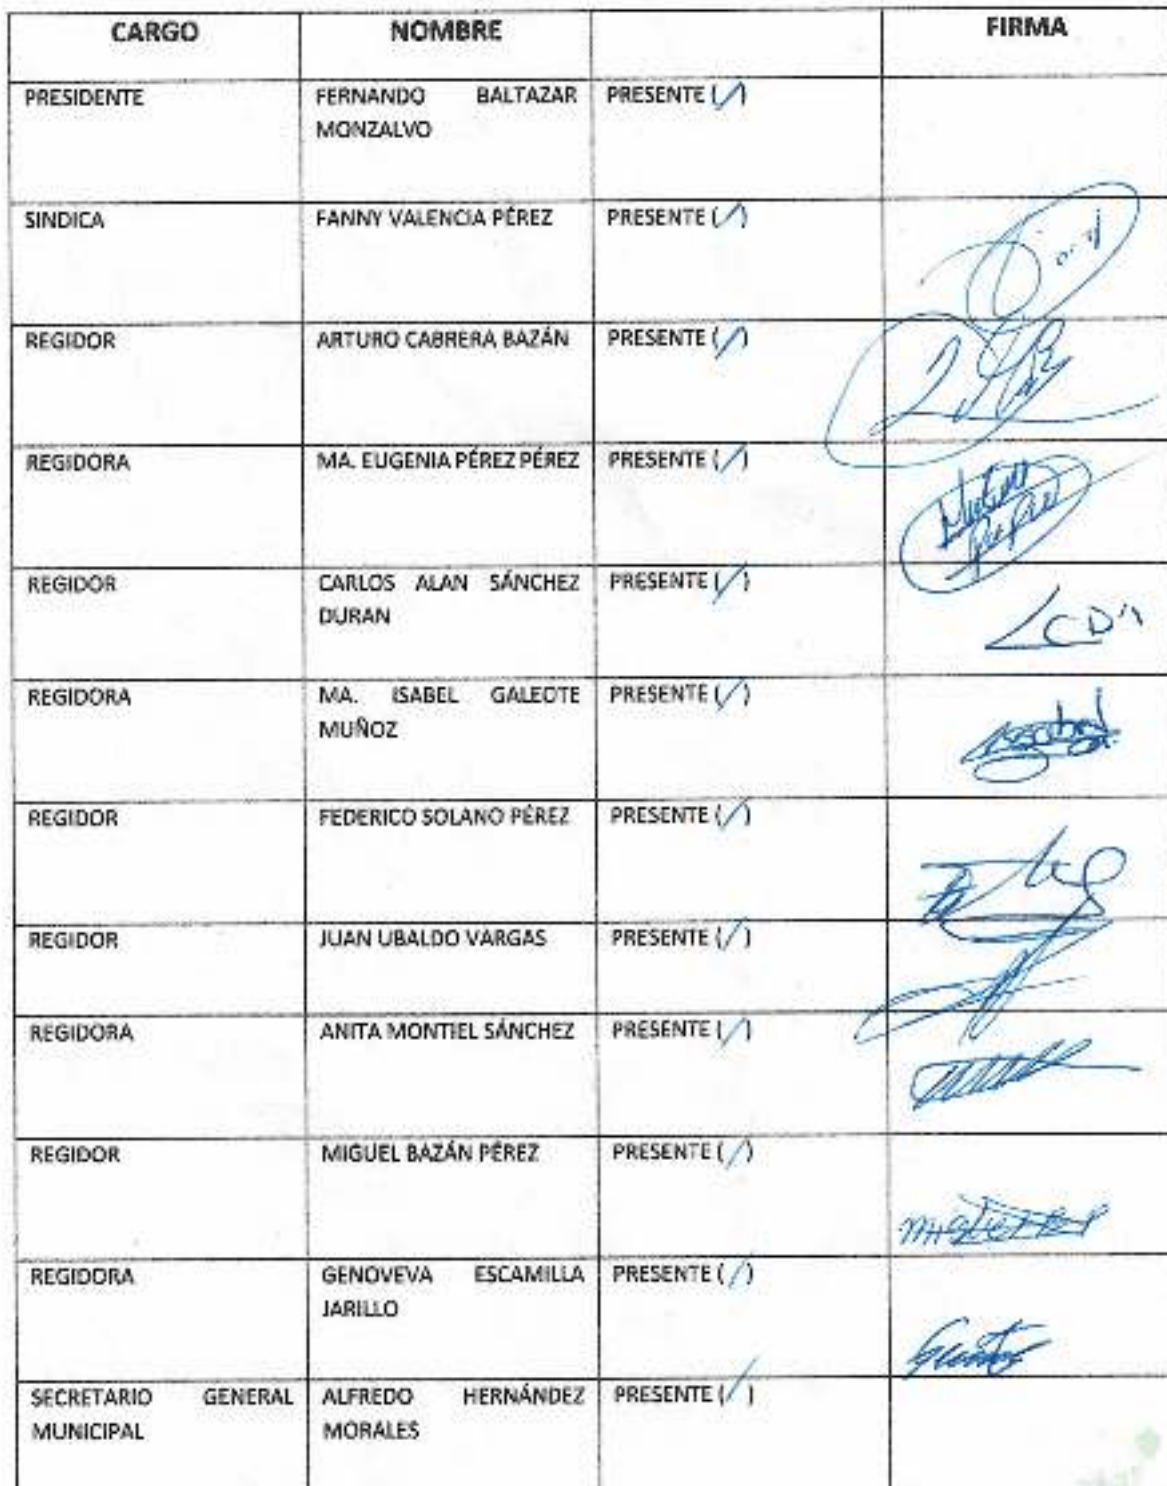 CARGO NOMBRE FIRMA
PRESIDENTE FERNANDO BALTAZAR PRESENTE (/)
MONZALVO
SINDICA FANNY VALENCIA PÉREZ PRESENTE (/)
REGIDOR ARTURO CABRERA BAZÁN PRESENTE (/)
REGIDORA MA. EUGENIA PÉREZ PÉREZ PRESENTE (/)
REGIDOR CARLOS ALAN SÁNCHEZ PRESENTE (/)
DURAN
REGIDORA MA. ISABEL GALEOTE PRESENTE (/)
MUÑOZ
REGIDOR FEDERICO SOLANO PÉREZ PRESENTE (/)
REGIDOR JUAN UBALDO VARGAS PRESENTE (/)
REGIDORA ANITA MONTIEL SÁNCHEZ PRESENTE (/)
REGIDOR MIGUEL BAZÁN PÉREZ PRESENTE (/)
REGIDORA GENOVEVA ESCAMILLA PRESENTE (/)
JARILLO
SECRETARIO GENERAL ALFREDO HERNÁNDEZ PRESENTE (/)
MUNICIPAL MORALES